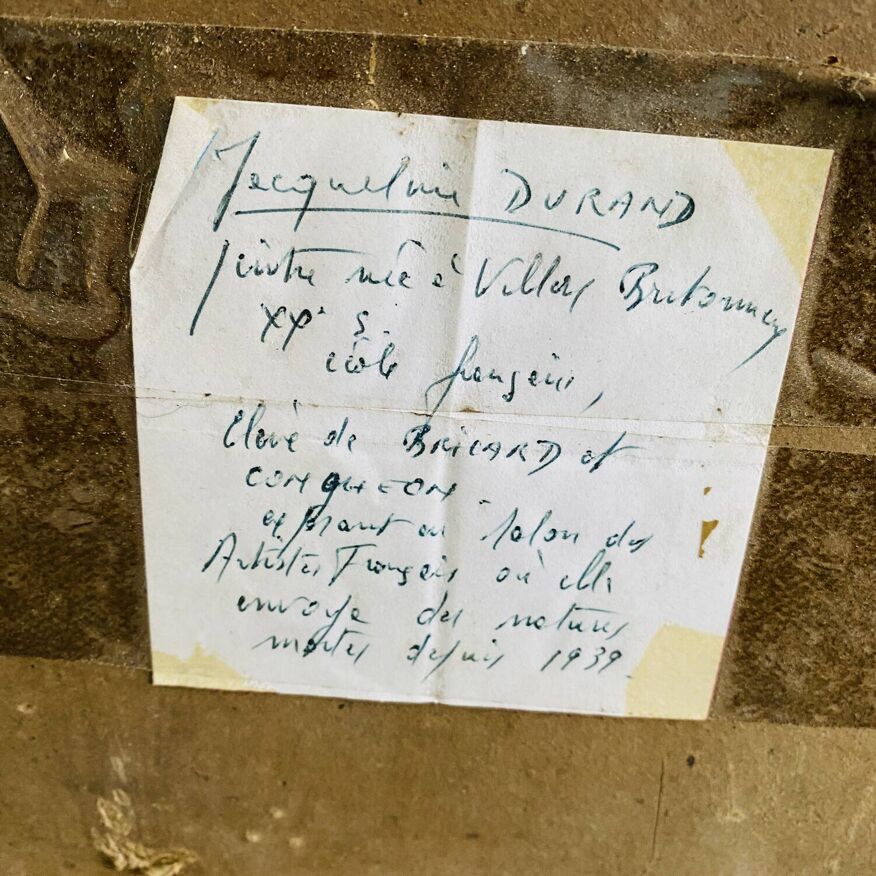 Jacqueline DURAND
peintre née à Villers Bretonneux
XXe S.
école française,
Elève de BRICARD et
CONQUEON.
exposant au Salon des
Artistes Français où elle
envoye des natures
mortes depuis 1939.